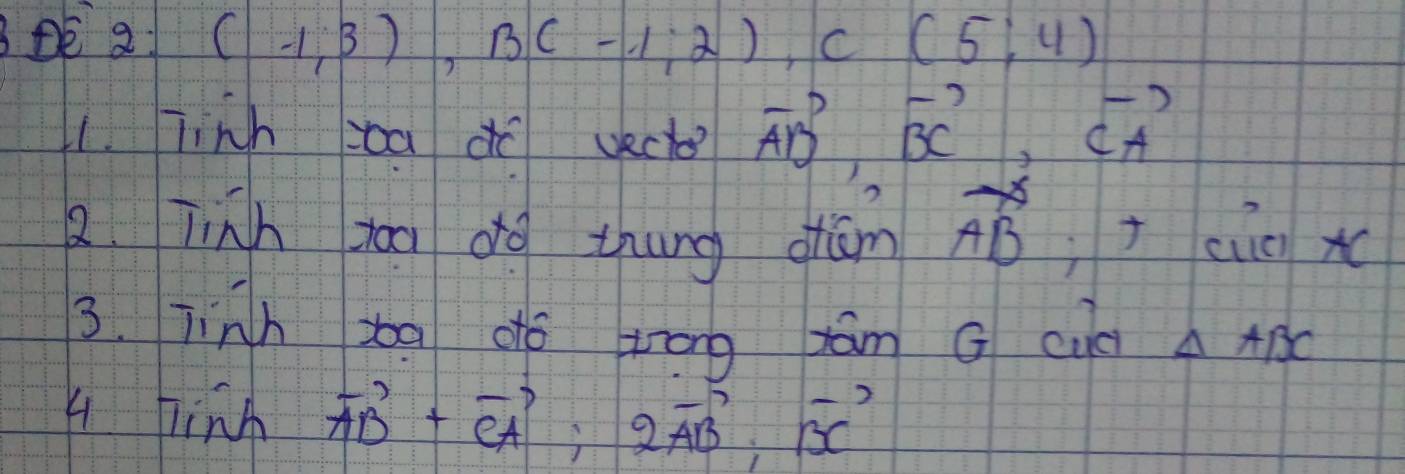 Đề 2: (-1; 3), B(-1; 2), C (5; 4)
1. Tính toạ độ vectơ \overrightarrow{AB}, \overrightarrow{BC}, \overrightarrow{CA}
2. Tính toạ độ trung điểm \overrightarrow{AB}; J của AC
3. Tính toạ độ trọng tâm G của Δ ABC
4 Tính \overrightarrow{AB} + \overrightarrow{CA}; 2\overrightarrow{AB}, \overrightarrow{BC}